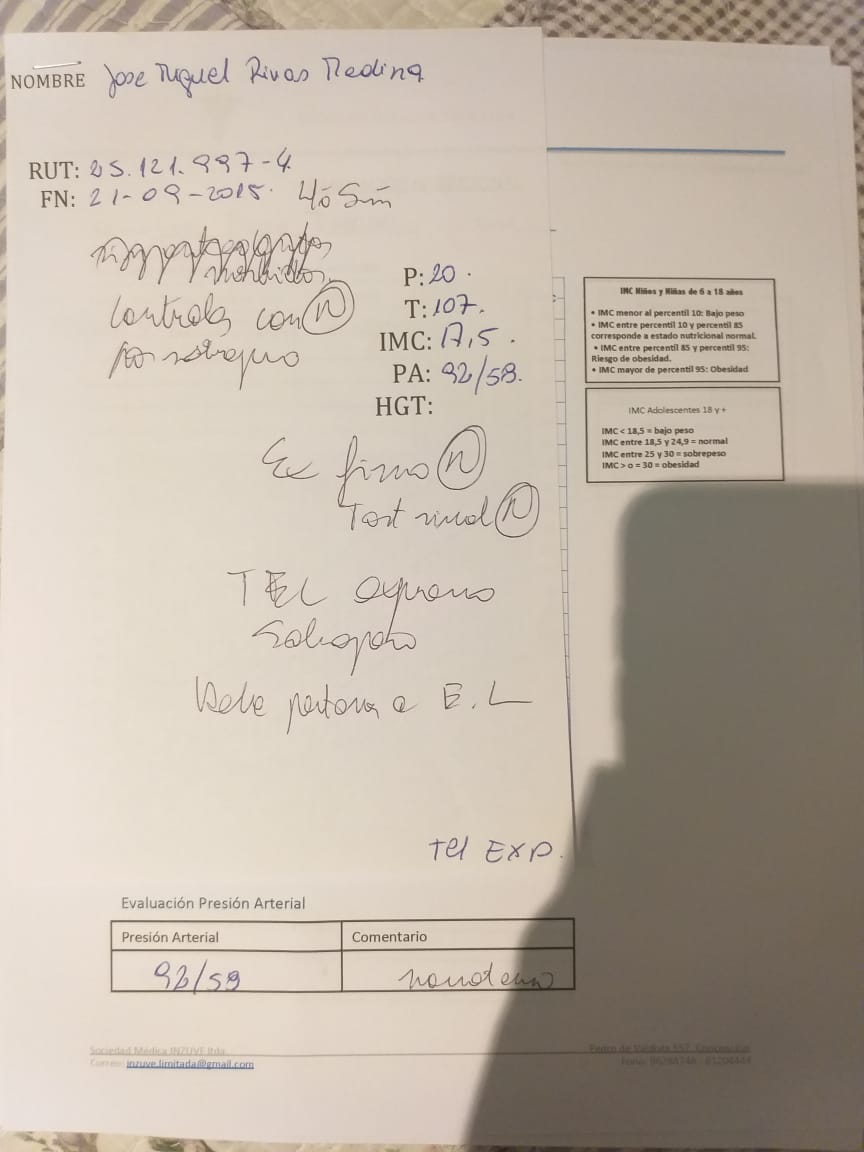 NOMBRE Jose Miguel Rivas Medina
RUT: 25.121.997-4
FN: 21-09-2015. 4a 5m
P: 20.
T: 107.
IMC: 17,5.
PA: 92/59.
HGT:
Controles con N
por sobrepeso
Ex físico N
Test visual N
TEL expresivo
Sobrepeso
Debe a E.L
Tel EXP.
IMC Niños y Niñas de 6 a 18 años
• IMC menor al percentil 10: Bajo peso
• IMC entre percentil 10 y percentil 85
corresponde a estado nutricional normal.
• IMC entre percentil 85 y percentil 95:
Riesgo de obesidad.
• IMC mayor de percentil 95: Obesidad
IMC Adolescentes 18 y +
IMC < 18,5 = bajo peso
IMC entre 18,5 y 24,9 = normal
IMC entre 25 y 30 = sobrepeso
IMC > o = 30 = obesidad
Evaluación Presión Arterial
Presión Arterial
Comentario
92/59
Sociedad Médica INZUVE ltda.
Correo: inzuve.limitada@gmail.com
Pedro de Valdivia 557, Concepción